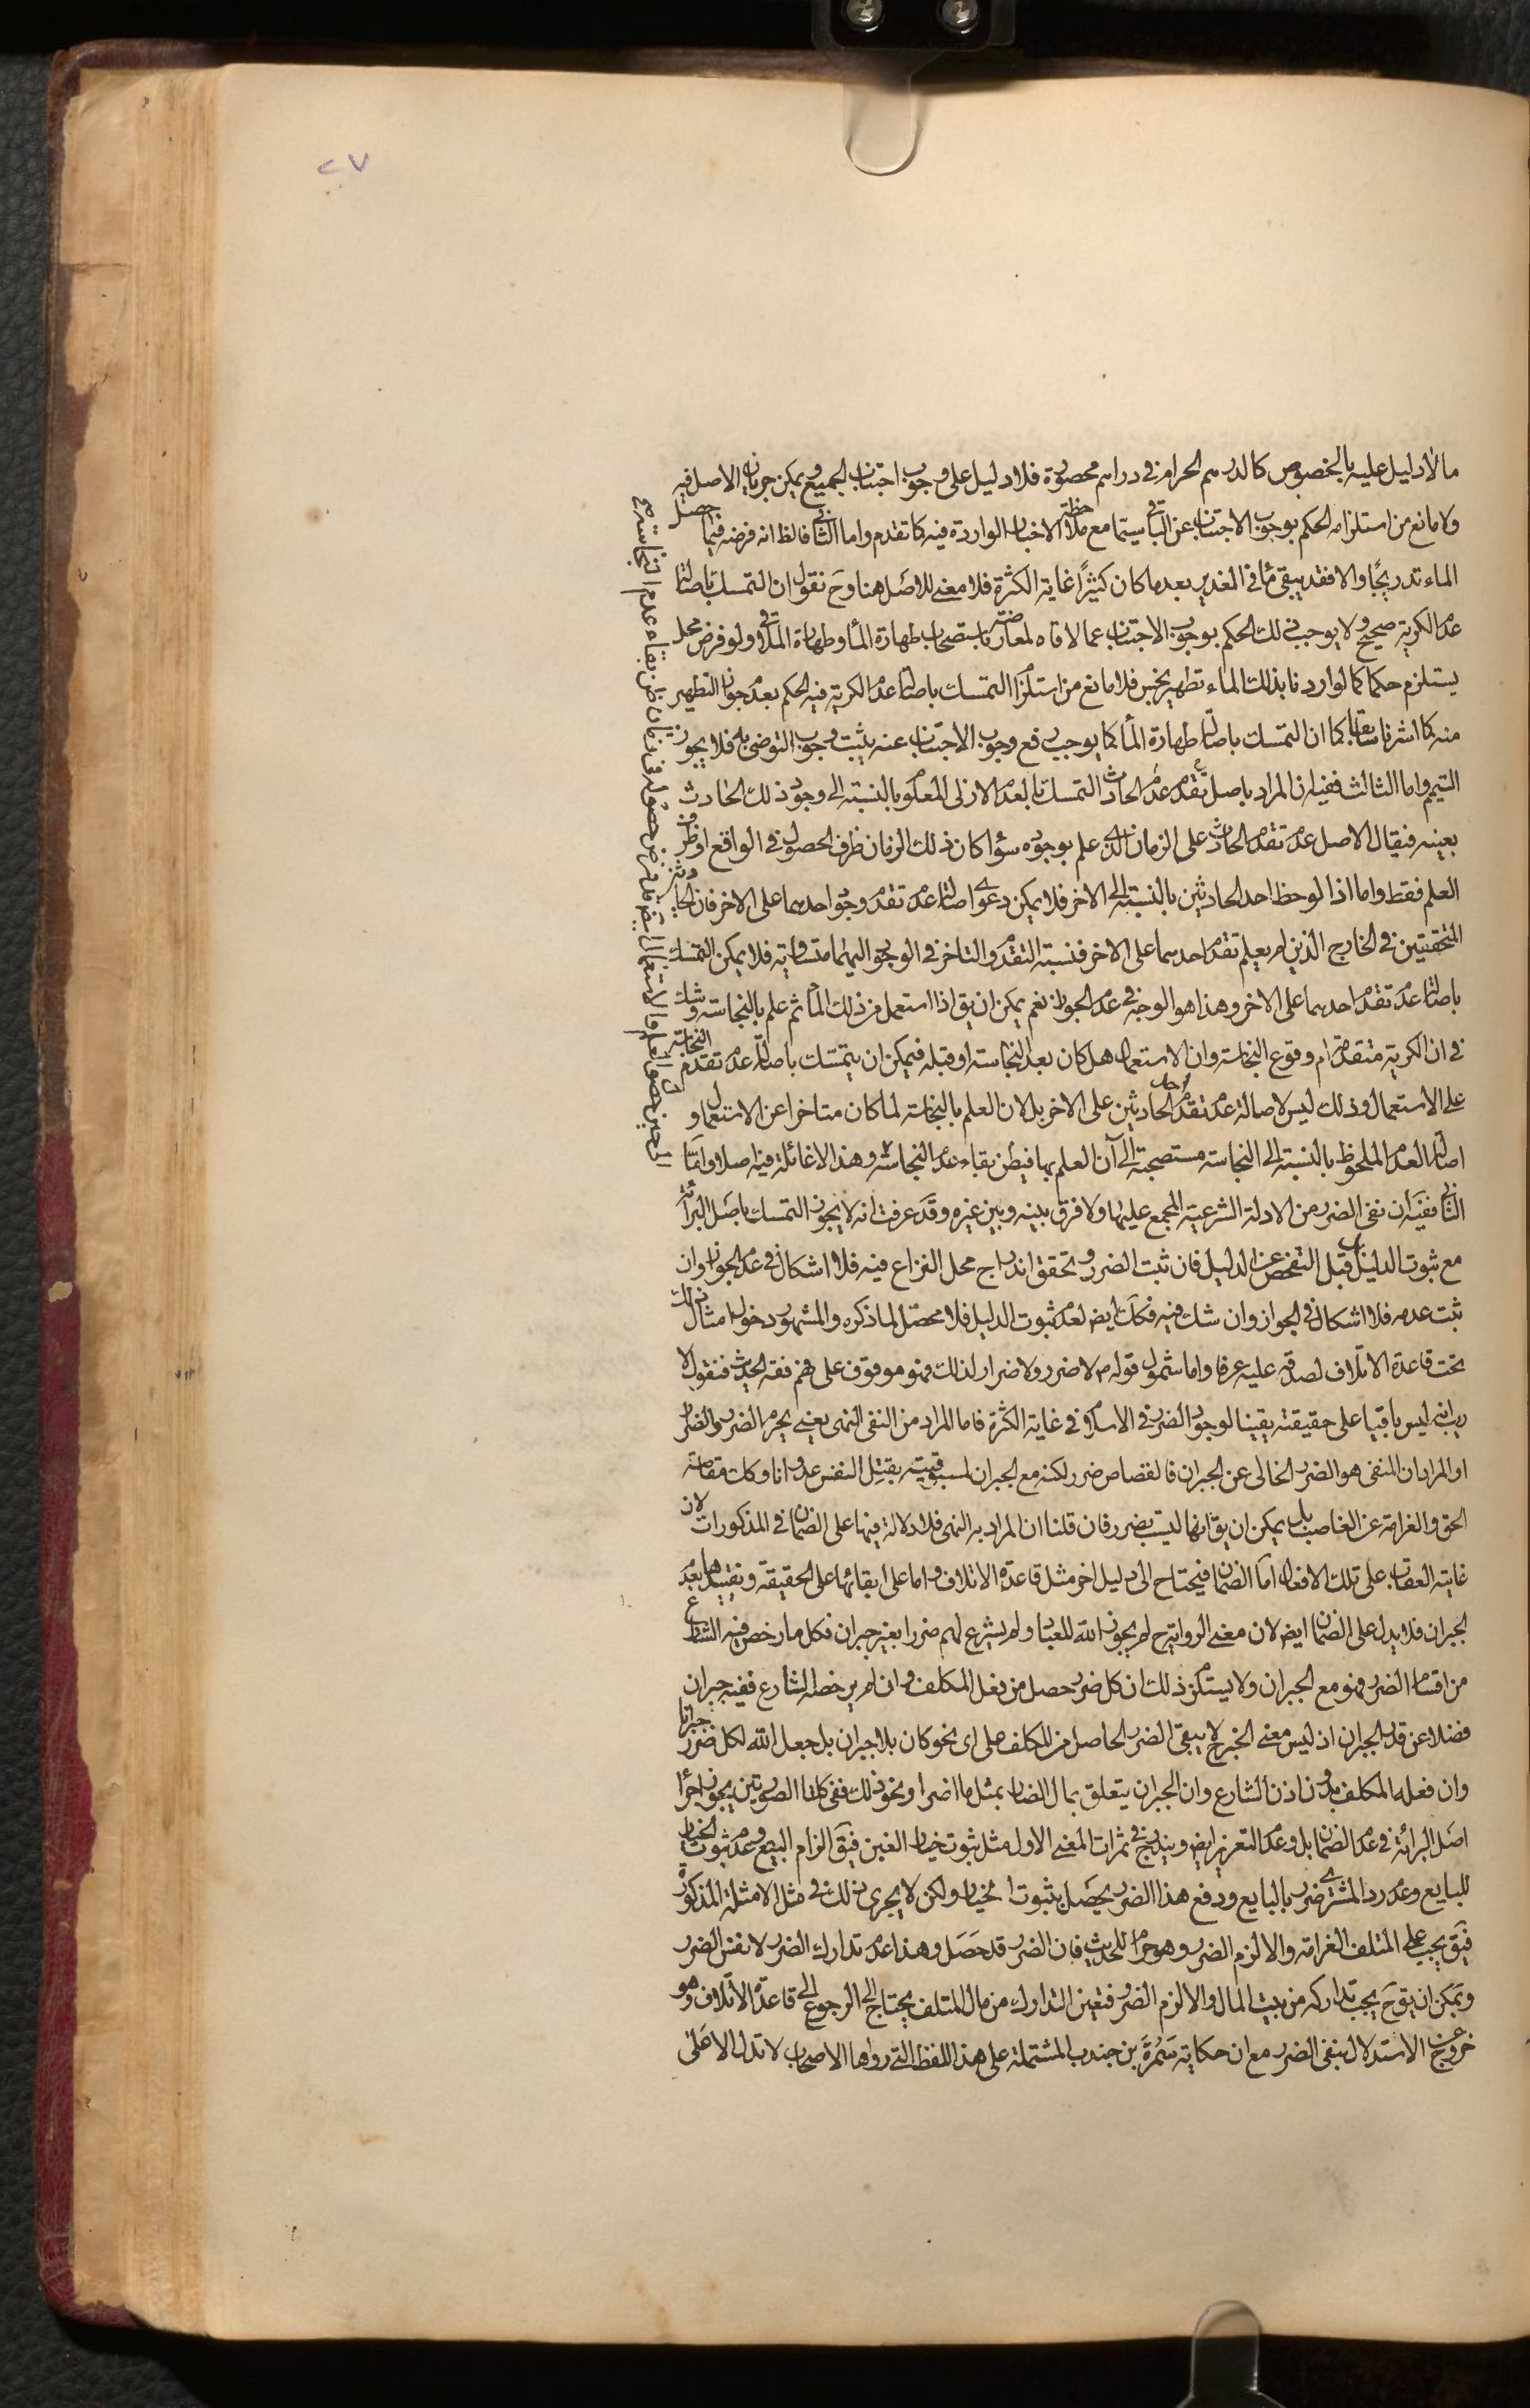 ٢٧
ما لا دليل عليه بالخصوص كالدرهم الحرام فى دراهم محصورة فلا دليل على وجوب اجتناب الجميع ويمكن جريان الاصل فيه
ولا مانع من استلزامه الحكم بوجوب الاجتناب عن الباقى سيما مع ملاحظة الاخبار الواردة فيه كما تقدم واما الثانى فالظ انه فرضه فيما حصل
الماء تدريجًا والا فقد يبقى ماء فى الغدير بعد ما كان كثيرًا غاية الكثرة فلا معنى للاصل هنا وح نقول ان التمسك باصالة
عدم الكرية صحيح ولا يوجب ذلك الحكم بوجوب الاجتناب عما لاقاه لمعارضته باستصحاب طهارة الماء وطهارة الملاقى ولو فرض محل
يستلزم حكما كما لو اردنا بذلك الماء تطهير نجس فلا مانع من استلزام التمسك باصالة عدم الكرية فيه الحكم بعدم جواز التطهير
منه كما اشرنا سابقا كما ان التمسك باصالة طهارة الماء كما يوجب رفع وجوب الاجتناب عنه يثبت وجوب التوضى به فلا يجوز
التيمم واما الثالث ففيه ان المراد باصل عدم تقدم الحادث التمسك بالعدم الازلى المعلوم بالنسبة الى وجود ذلك الحادث
بعينه فيقال الاصل عدم تقدم الحادث على الزمان الذى علم بوجوده سواء كان ذلك الزمان ظرف الحصول فى الواقع او ظرف
العلم فقط واما اذا لوحظ احد الحادثين بالنسبة الى الاخر فلا يمكن دعوى اصالة عدم تقدم وجود احدهما على الاخر فان الحادثين
المتحققين فى الخارج الذين لم يعلم تقدم احدهما على الاخر فنسبة التقدم والتاخر فى الوجود اليهما متساوية فلا يمكن التمسك
باصالة عدم تقدم احدهما على الاخر وهذا هو الوجه فى عدم الجواز نعم يمكن ان يق اذا استعمل من ذلك الماء ثم علم بالنجاسة وشك
فى ان الكرية متقدمة ام وقوع النجاسة وان الاستعمال هل كان بعد النجاسة او قبله فيمكن ان يتمسك باصالة عدم تقدم النجاسة
على الاستعمال وذلك ليس لاصالة عدم تقدم احد الحادثين على الاخر بل لان العلم بالنجاسة لما كان متاخرا عن الاستعمال و
اصالة العدم الملحوظ بالنسبة الى النجاسة مستصحبة الى آن العلم بها فيظن بقاء عدم النجاسة وهذا لا غائلة فيه اصلا واما
الثانى ففيه ان نفى الضرر من الادلة الشرعية المجمع عليها ولا فرق بينه وبين غيره وقد عرفت انه لا يجوز التمسك باصل البرائة
مع ثبوت الدليل بل قبل التفحص عن الدليل فان ثبت الضرر وتحقق اندراج محل النزاع فيه فلا اشكال فى عدم الجواز وان
ثبت عدمه فلا اشكال فى الجواز وان شك فيه فكك ايض لعدم ثبوت الدليل فلا محصّل لما ذكره والمشهور دخول امثال ذلك
تحت قاعدة الاتلاف لصدقه عليه عرفا واما شمول قوله ص لا ضرر ولا ضرار لذلك فهو موقوف على فهم فقه الحديث فنقول لا
ريب انه ليس باقيا على حقيقته يقينا لوجود الضرر فى الاسلام فى غاية الكثرة فاما المراد من النفى النهى يعنى يحرم الضرر والضرار
او المراد ان المنفى هو الضرر الخالى عن الجبران فالقصاص ضرر لكنه مع الجبران لمسبوقيته بقتل النفس عدوانا وكك مقاصة
الحق والغرامة عن الغاصب بل يمكن ان يق انها ليست بضرر فان قلنا ان المراد به النهى فلا دلالة فيها على الضمان فى المذكورات لان
غايته العقاب على تلك الافعال اما الضمان فيحتاج الى دليل اخر مثل قاعدة الاتلاف واما على ابقائها على الحقيقة وتقييدها بعدم
الجبران فلا يدل على الضمان ايض لان معنى الرواية ح لم يجوز الله للعباد ولم يشرع لهم ضررا بغير جبران فكل ما رخص فيه الشارع
من اقسام الضرر فهو مع الجبران ولا يستلزم ذلك ان كل ضرر حصل من فعل المكلف وان لم يرخصه الشارع ففيه جبران
فضلا عن قدر الجبران اذ ليس معنى الخبر ح لا يبقى الضرر الحاصل من المكلف على اى نحو كان بلا جبران بل جعل الله لكل ضرر جبرانا
وان فعله المكلف بدون اذن الشارع وان الجبران يتعلق بمال الضار بمثل ما اضر او نحو ذلك ففى كلتا الصورتين يجوز اجراء
اصل البرائة فى عدم الضمان بل وعدم التعزير ايض ويندرج فى ثمرات المعنى الاول مثل ثبوت خيار الغبن فيق الزام البيع وعدم ثبوت الخيار
للبايع وعدم رد المشترى ضرر بالبايع ودفع هذا الضرر يحصل بثبوت الخيار ولكن لا يجرى ذلك فى مثل الامثلة المذكورة
فيق يجب على المتلف الغرامة والا لزم الضرر وهو حرام للحديث فان الضرر قد حصل وهذا عدم تدارك الضرر لا نفس الضرر
ويمكن ان يق ح يجب تداركه من بيت المال والا لزم الضرر فتعين التدارك من مال المتلف يحتاج الى الرجوع الى قاعدة الاتلاف وهو
خروج عن الاستدلال بنفى الضرر مع ان حكاية سمرة بن جندب المشتملة على هذا اللفظ التى رواها الاصحاب لا تدل الا على